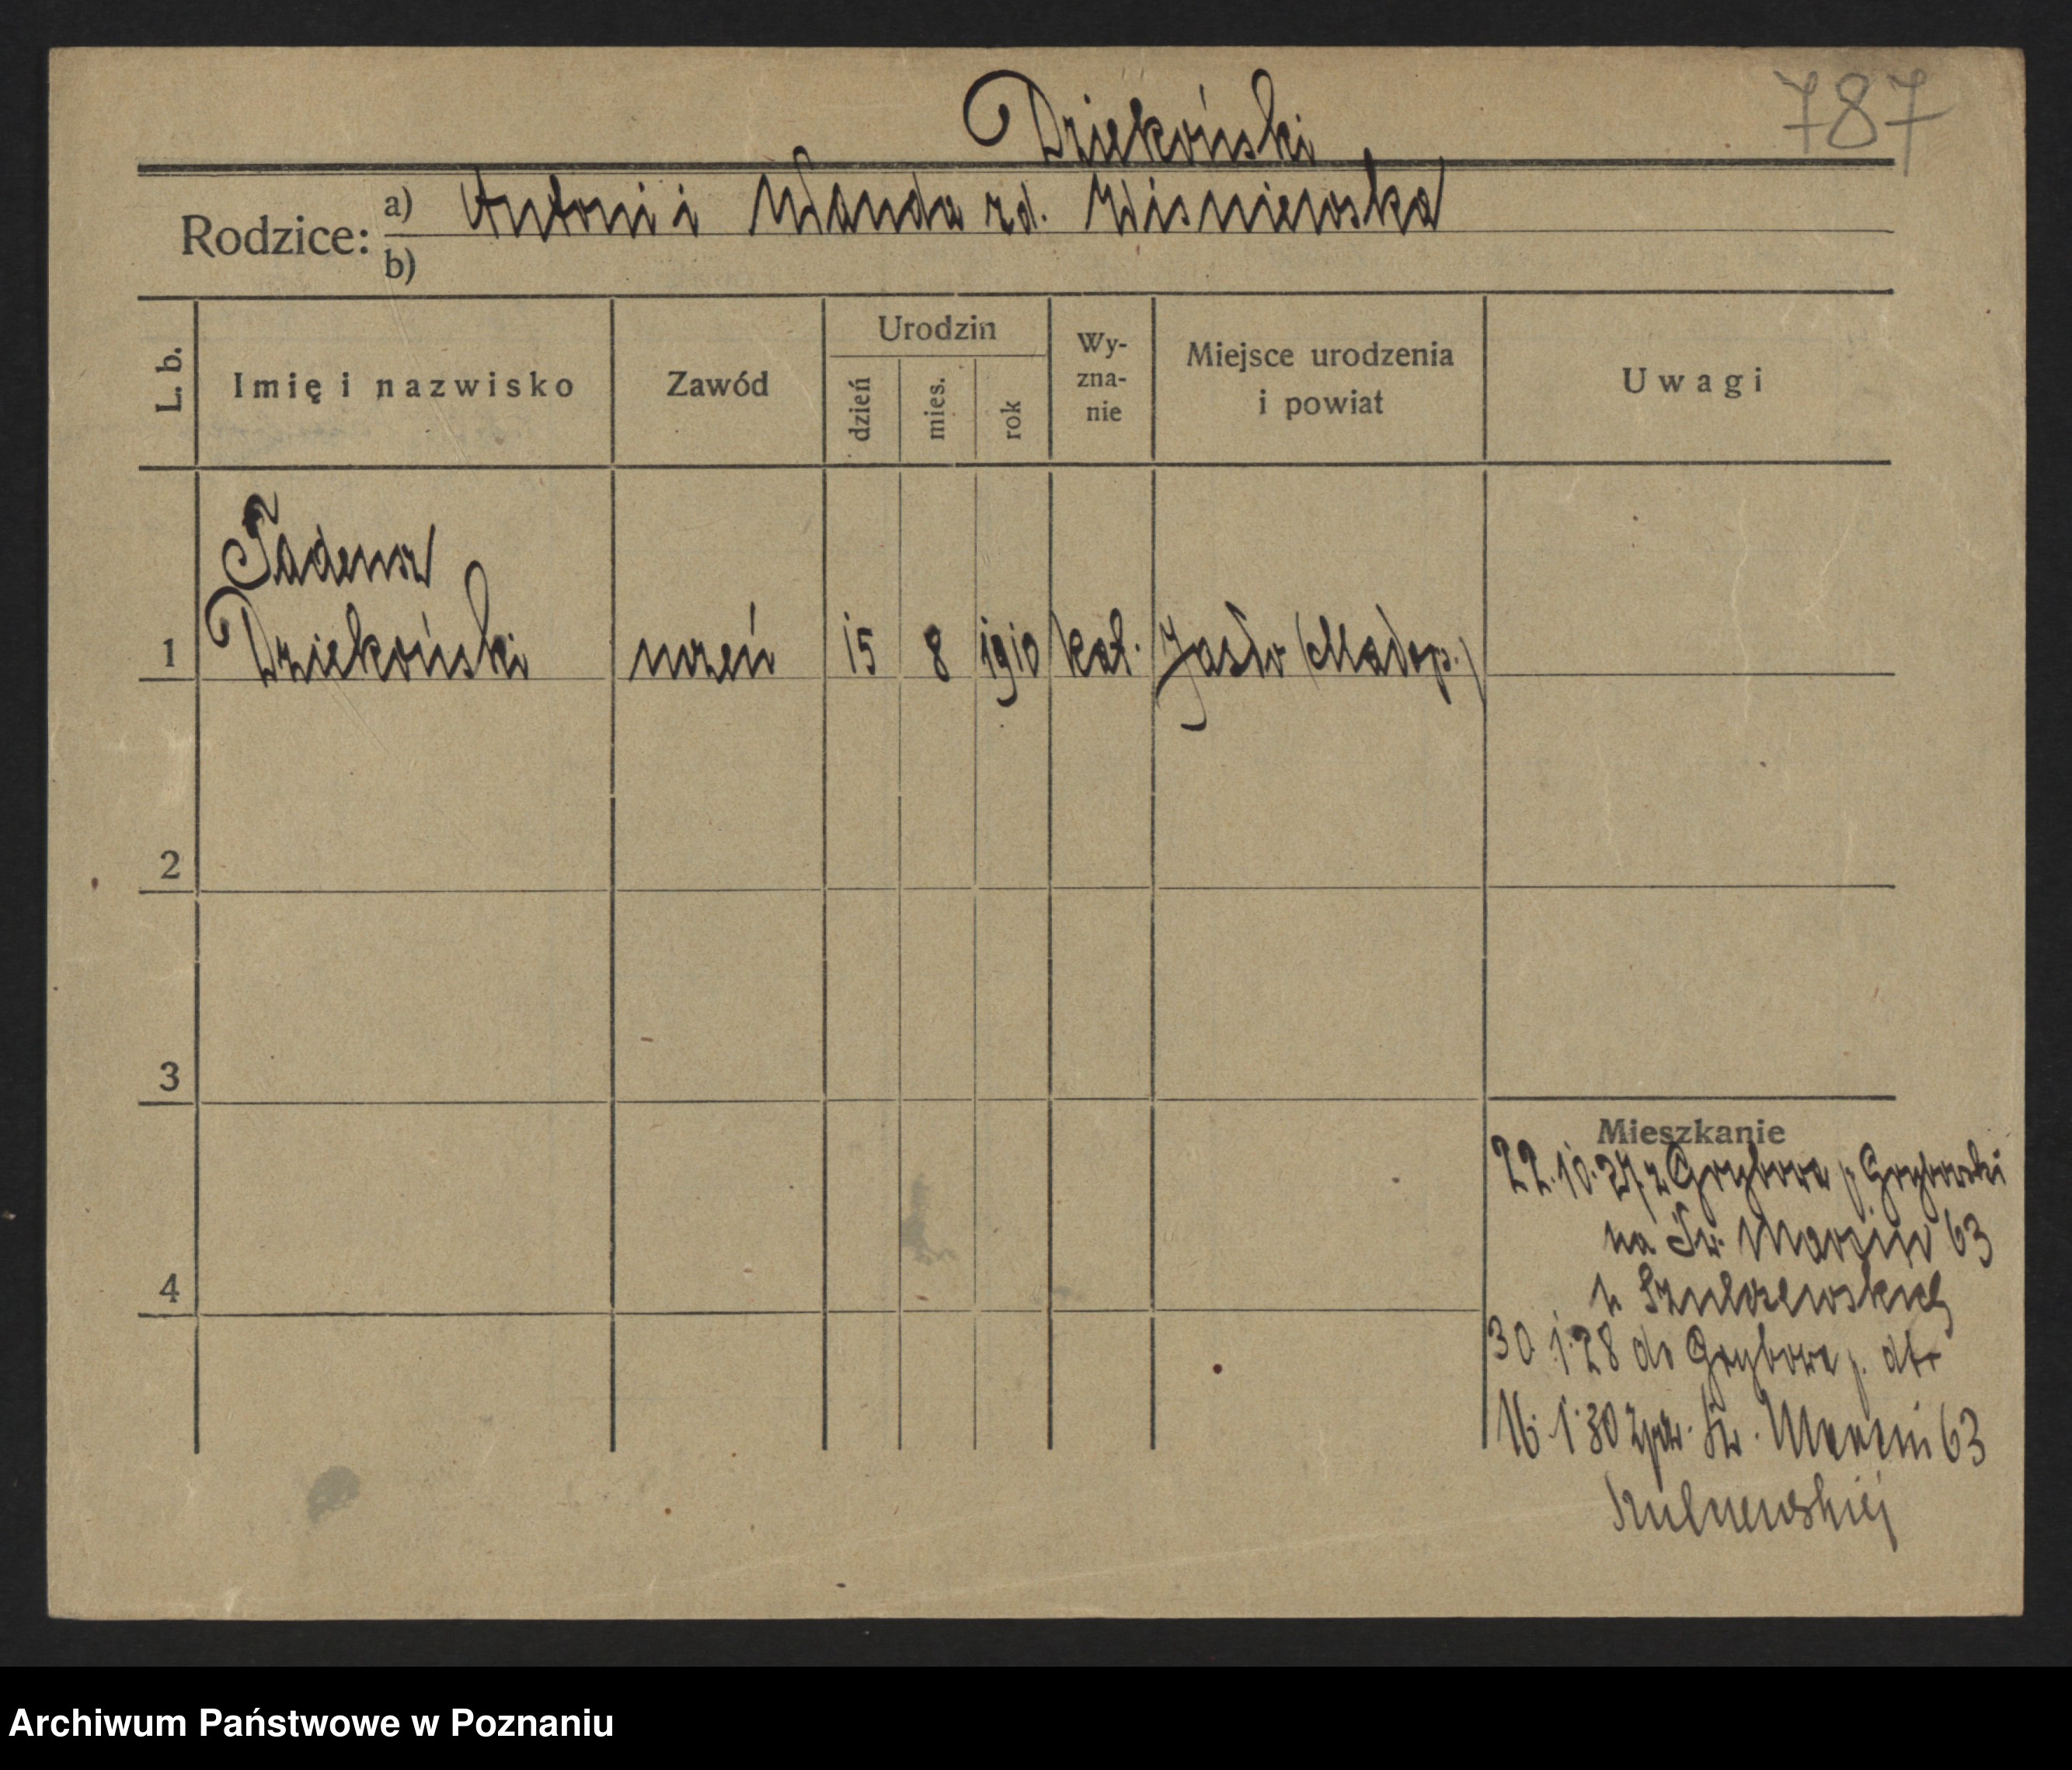 787
Dziekoński
Rodzice: a) Antoni i Wanda zd. Wiśniewska
b)
L. b. Imię i nazwisko Zawód Urodzin dzień mies. rok Wy-zna-nie Miejsce urodzenia i powiat Uwagi
Tadeusz
1 Dziekoński uczeń 15 8 1910 kat. Jasło (Małop.)
2
3
Mieszkanie
22.10.27 z Grybowa p Grybowski
na Św. Marcin 63
4 u Szulczewskich
30 1.28 do Grybowa p.
16.1.30 zpw. Św. Marcin 63
Szulczewskiej
Archiwum Państwowe w Poznaniu